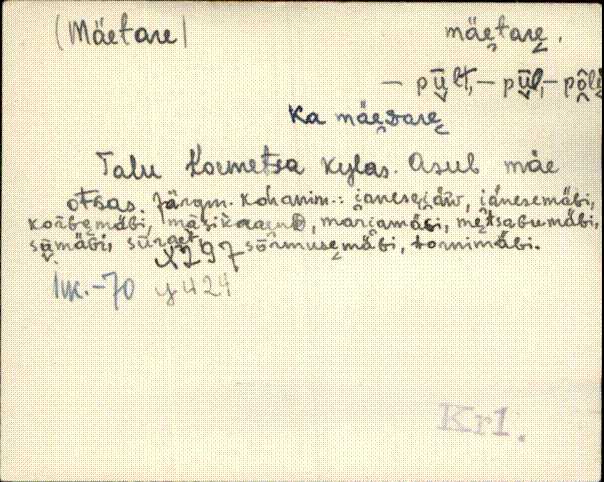 (Mäetare) mäetare.
– pūlt, – pūl, – pōli
Ka mäetare
Talu Kormetsa kylas. Asub mäe
otsas. Järgm. kohanim.: jäneseiäŵ, jänesemäbi,
korbemäbi, mäsikaaru, marjamäbi, metsabumäbi,
sūmäbi, sūraet, sõrmusemäbi, tornimäbi.
x297
Mk. -70 y 424
Kr1.